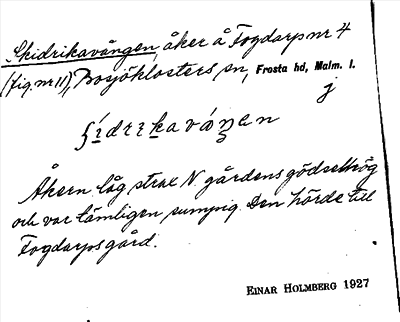 Skidrikavången, åker å Fogdarp nr 4
(fig. nr 11), Bosjöklosters sn, Frosta hd, Malm. l.
j
Åkern låg strax N gårdens gödselhög
och var tämligen sumpig. Den hörde till
Fogdarps gård.
EINAR HOLMBERG 1927